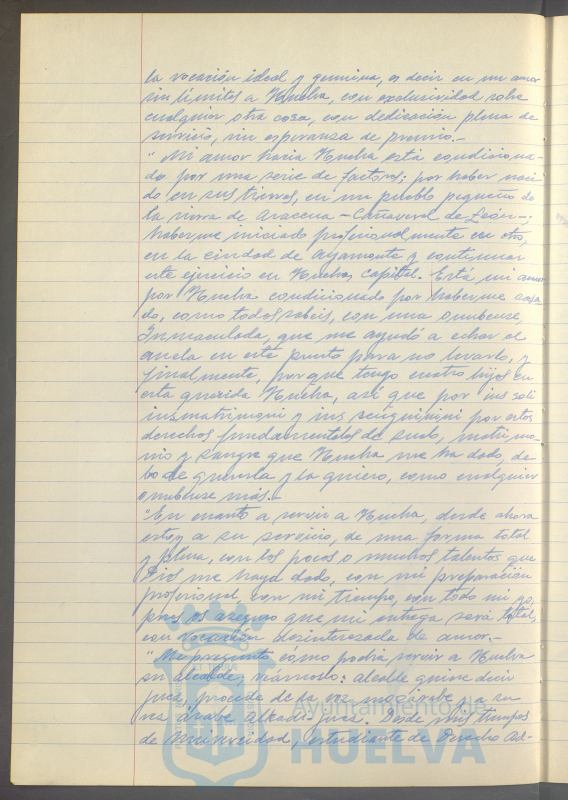 la vocación ideal y genuina, es decir en un amor
sin límites a Huelva, con exclusividad sobre
cualquier otra cosa, con dedicación plena de
servicio, sin esperanza de premio.-
"Mi amor hacia Huelva está condiciona-
do por una serie de factores; por haber naci
do en sus tierras, en un pueblo pequeño de
la sierra de Aracena - Cañaveral de León -;
haberme iniciado profesionalmente en otro,
en la ciudad de Ayamonte y continuar
este ejercicio en Huelva, capital. Está mi amor
por Huelva condicionado por haberme casa
do, como todos sabéis, con una onubense,
Inmaculada, que me ayudó a echar el
ancla en este punto para no levarla, y
finalmente, porque tengo cuatro hijos en
esta querida Huelva, así que por ius soli
ius matrimonii y ius sanguinis por estos
derechos fundamentales de suelo, matrimo-
nio y sangre que Huelva me ha dado, de-
bo de quererla y la quiero, como cualquier
onubense más.-
"En cuanto a servir a Huelva, desde ahora
estoy a su servicio, de una forma total
y plena, con los pocos o muchos talentos que
Dios me haya dado, con mi preparación
profesional, con mi tiempo, con todo mi yo,
pues os aseguro que mi entrega será total,
con vocación desinteresada de amor.-
"Me pregunto cómo podría servir a Huelva
su alcalde, veámoslo: alcalde quiere decir
juez, procede de la voz mozárabe y a su
vez árabe alkadí juez. Desde mis tiempos
de Universidad, estudiante de Derecho Ad-
Ayuntamiento de
HUELVA